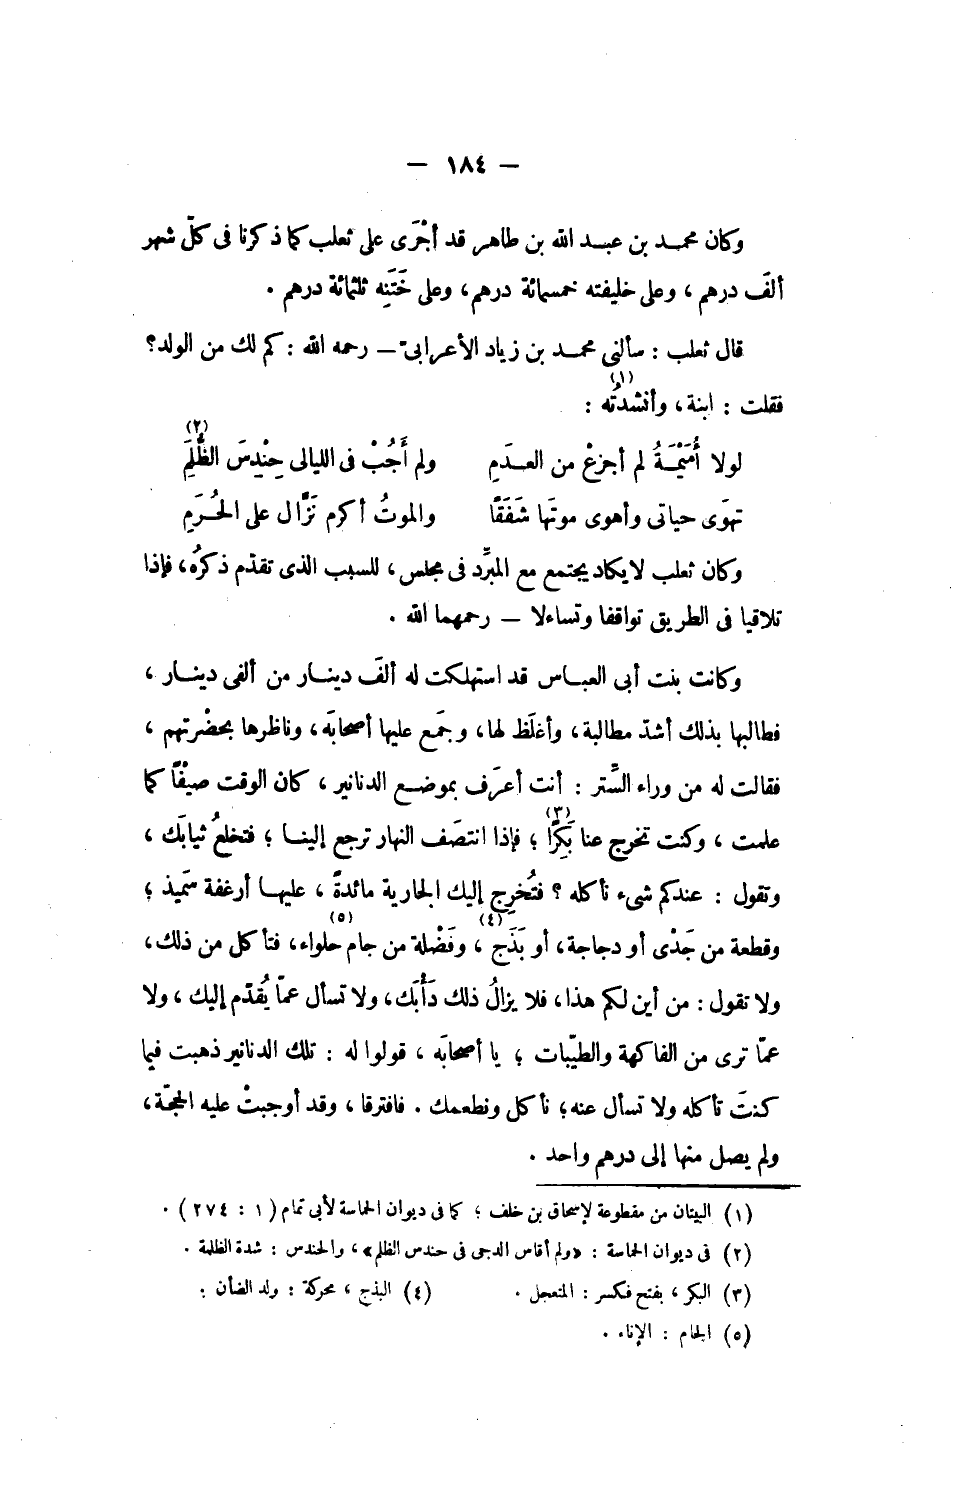 — ١٨٤ —
وكان محمد بن عبد الله بن طاهر قد أجْرَى على ثعلب كما ذكرنا فى كلّ شهر
ألفَ درهم ، وعلى خليفته خمسمائة درهم، وعلى خَتَنِه ثلثمائة درهم .
قال ثعلب : سألنى محمد بن زياد الأعرابىّ — رحمه الله : كم لك من الولد؟
فقلت : ابنة، وأنشدتُه (١) :
لولا أُمَيْمَةُ لم أجزعْ من العدَمِ ولم أَجُبْ فى الليالى حِنْدِسَ الظُّلَمِ (٢)
تهوَى حياتى وأهوى موتَها شَفَقًا والموتُ أكرم نَزَّال على الحُرَمِ
وكان ثعلب لايكاد يجتمع مع المبرِّد فى مجلس، للسبب الذى تقدّم ذكرُه، فإذا
تلاقيا فى الطريق تواقفا وتساءلا — رحمهما الله .
وكانت بنت أبى العباس قد استهلكت له ألفَ دينار من ألفى دينار ،
فطالبها بذلك أشدّ مطالبة، وأغلَظ لها، وجمَع عليها أصحابَه، وناظرها بحضْرتهم ،
فقالت له من وراء السِّتر : أنت أعرَف بموضع الدنانير ، كان الوقت صيْفًا كما
علمت ، وكنت تخرج عنا بَكِرًا (٣) ؛ فإذا انتصَف النهار ترجع إلينا ؛ فتخلعُ ثيابَك ،
وتقول : عندكم شىء نأكله ؟ فتُخرِج إليك الجارية مائدةً ، عليها أرغفة سَمِيذ ؛
وقطعة من جَدْى أو دجاجة، أو بَذَج (٤) ، وفَضْلة من جام (٥) حلواء، فتأكل من ذلك،
ولا تقول : من أين لكم هذا، فلا يزالُ ذلك دَأْبَك، ولا تسأل عمّا يُقدّم إليك ، ولا
عمّا ترى من الفاكهة والطيّبات ؛ يا أصحابَه ، قولوا له : تلك الدنانير ذهبت فيما
كنتَ تأكله ولا تسأل عنه؛ نأكل ونطعمك . فافترقا ، وقد أوجبتْ عليه الحجّة،
ولم يصل منها إلى درهم واحد .
(١) البيتان من مقطوعة لإسحاق بن خلف ؛ كما فى ديوان الحماسة لأبى تمام (١ : ٢٧٤) .
(٢) فى ديوان الحماسة : «ولم أقاس الدجى فى حندس الظلم» ، والحندس : شدة الظلمة .
(٣) البكر ، بفتح فكسر : المتعجل . (٤) البذج ، محركة : ولد الضأن :
(٥) الجام : الإناء .